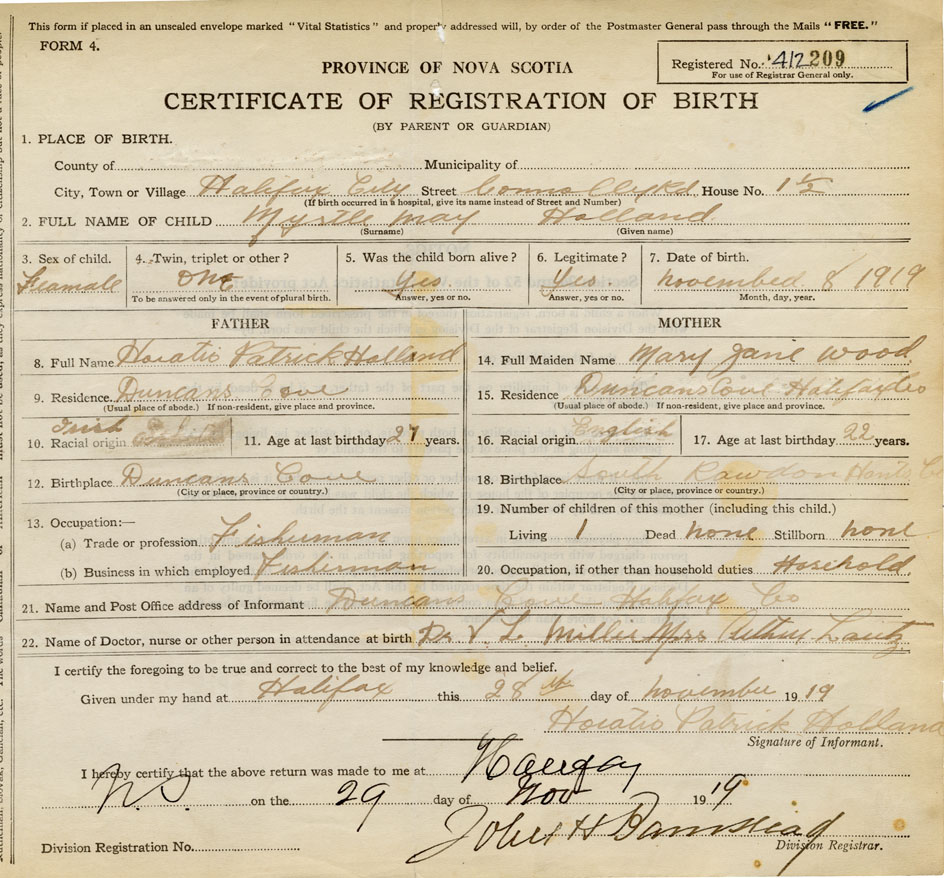 This form if placed in an unsealed envelope marked "Vital Statistics" and properly addressed will, by order of the Postmaster General pass through the Mails "FREE."
FORM 4.
Registered No. 412209
For use of Registrar General only.
PROVINCE OF NOVA SCOTIA
CERTIFICATE OF REGISTRATION OF BIRTH
(BY PARENT OR GUARDIAN)
1. PLACE OF BIRTH.
County of Municipality of
City, Town or Village Halifax City Street House No. 1½
(If birth occurred in a hospital, give its name instead of Street and Number)
2. FULL NAME OF CHILD Myrtle may Holland
(Surname) (Given name)
3. Sex of child. 4. Twin, triplet or other? 5. Was the child born alive? 6. Legitimate? 7. Date of birth.
Feamale one Yes Yes november 8 1919
To be answered only in the event of plural birth. Answer, yes or no. Answer, yes or no. Month, day, year.
FATHER MOTHER
8. Full Name Horatio Patrick Holland
14. Full Maiden Name Mary Jane Wood
9. Residence. Duncans Cove
(Usual place of abode.) If non-resident, give place and province.
15. Residence Duncans Cove Halifax Co
(Usual place of abode.) If non-resident, give place and province.
10. Racial origin Irish 11. Age at last birthday 27 years.
16. Racial origin English 17. Age at last birthday 22 years.
12. Birthplace Duncans Cove
(City or place, province or country.)
18. Birthplace South Rawdon Hants Co
(City or place, province or country.)
13. Occupation:—
(a) Trade or profession Fisherman
(b) Business in which employed Fisherman
19. Number of children of this mother (including this child.)
Living 1 Dead none Stillborn none
20. Occupation, if other than household duties Hosehold
21. Name and Post Office address of Informant Duncans Cove Halifax Co
22. Name of Doctor, nurse or other person in attendance at birth Dr V. L. Miller Mrs
I certify the foregoing to be true and correct to the best of my knowledge and belief.
Given under my hand at Halifax this 28th day of november 1919
Horatio Patrick Holland
Signature of Informant.
I hereby certify that the above return was made to me at Halifax
N.S. on the 29 day of Nov 1919
John H Barnstead
Division Registration No. Division Registrar.